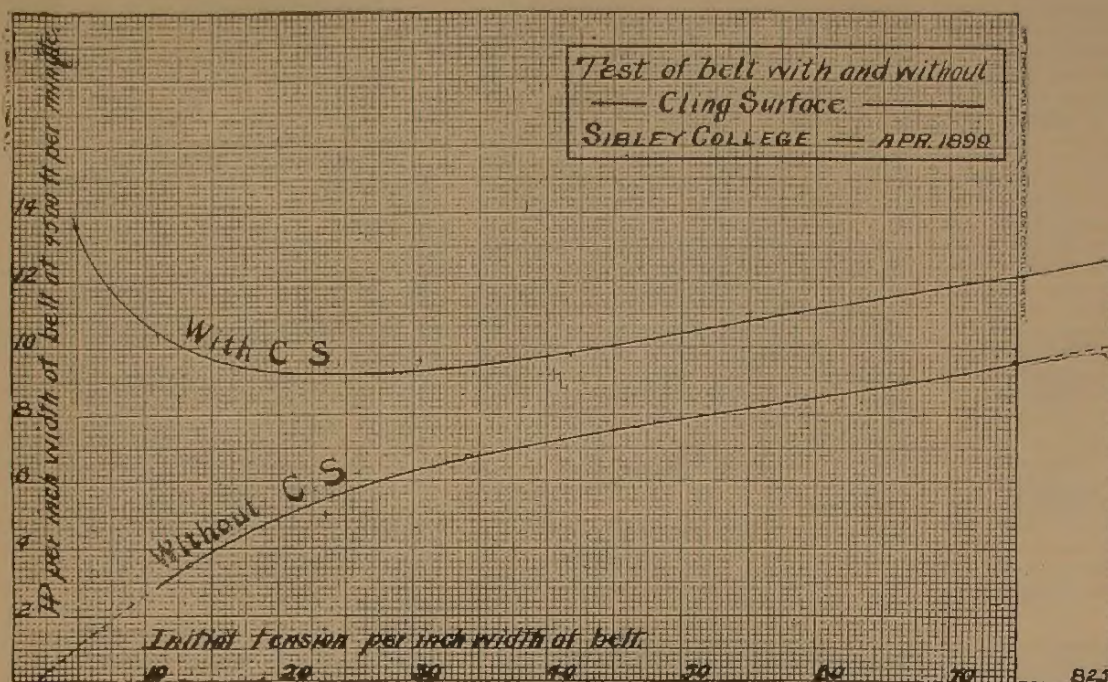 Test of belt with and without
Cling Surface.
SIBLEY COLLEGE — APR. 1899
HP per inch width of belt at 4500 ft per minute.
14
12
10
8
6
4
2
With C S
Without C. S
Initial tension per inch width of belt.
10 20 30 40 50 60 70 823